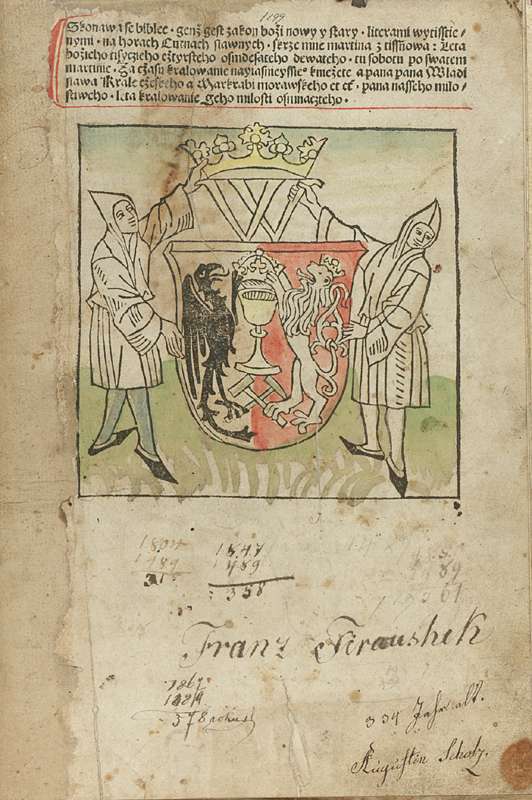 1489
Skonawa se biblee · genž gest zakon boži nowy y stary · literami wytisstie-
nymi · na horach Cutnach slawnych · skrze mne martina z tissnowa : Leta
božieho tisyczieho cztyrsteho osmdesateho dewateho · tu sobotu po swatem
martinie · Za czasu kralowanie nayiasneyssie kniežete a pana pana Wladi
slawa Krale czeskeho a Markrabi morawskeho et cet · pana nasseho milo-
stiweho · leta kralowanie geho milosti osmnaczteho ·
W
1847
1489
358
Franz
1867
1489
378 rokus
334 Jahr alt.
Augustin Scholz.